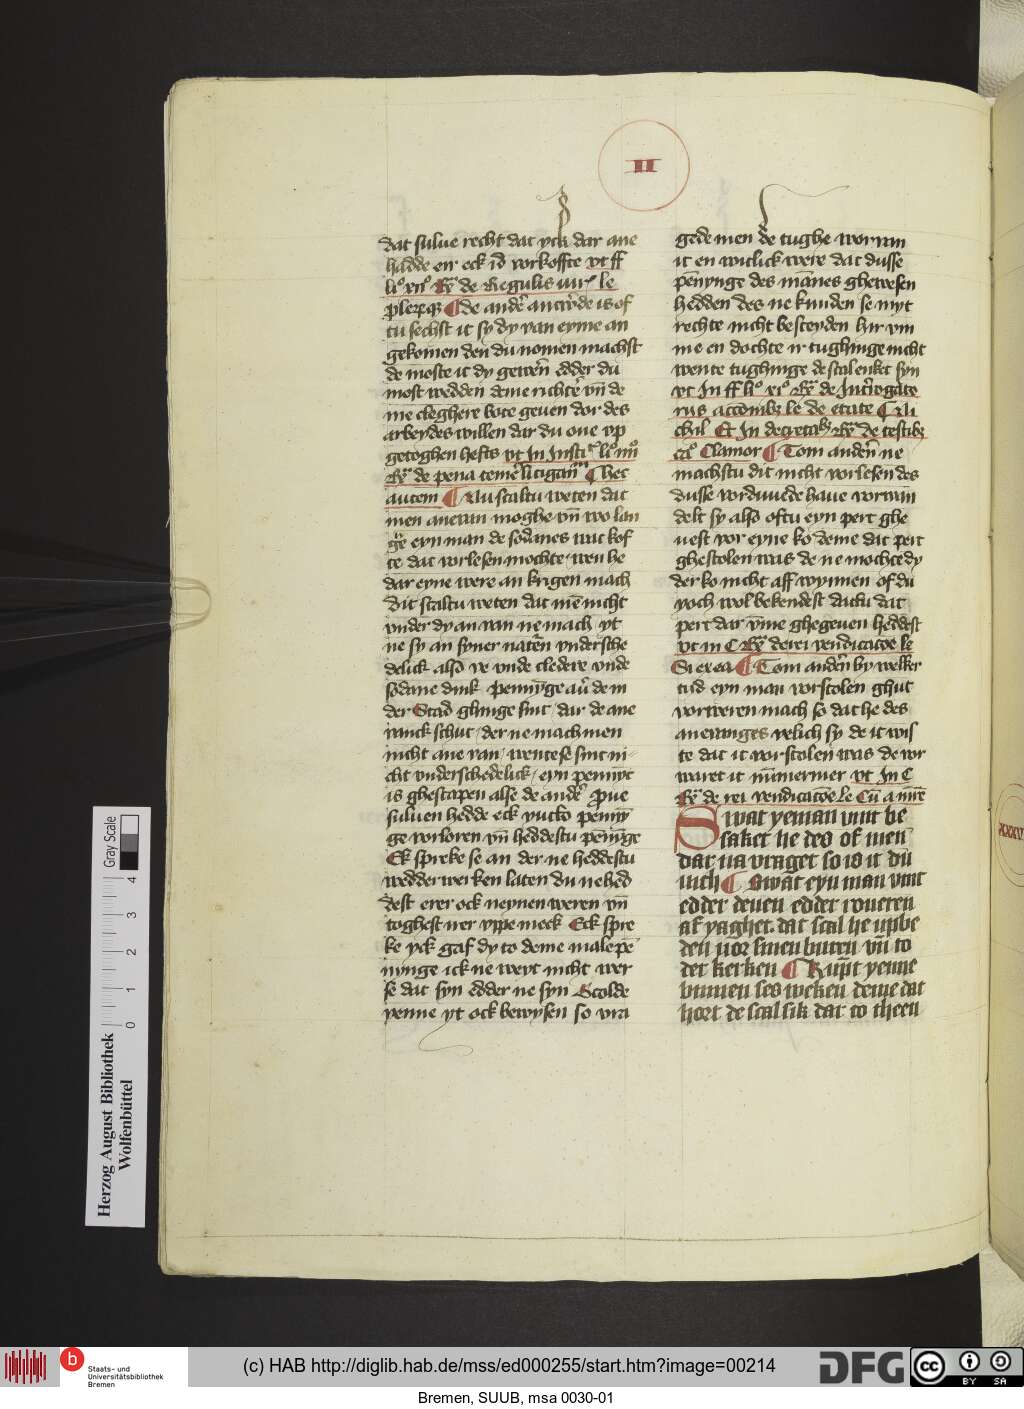 II
dat sulue recht dat yck dar ane
hadde eir eck id vorkoffte vt ff
de Regulis iur le
de anders antw̄rde is of
tu sechst it sy dy van eyme an
gekomen den du nomen machst
de moste it dy gewern̄ edder du
most wedden deme richter̄ vn̄ de
me cleghere bote geuen vor des
arbeydes willen dar du one vp
getoghen hefts vt In Insti
de pena teme litigan Hec
autem ¶ Nu scaltu weten dat
men anevan moghe vn̄ wo lan
ge eyn man de sodanes wat kof
te dat vorlesen mochte wen he
dar eyne were an krigen mach
Dit scaltu weten dat mē nicht
vnder dy an van ne mach yt
ne sy an syner naten̄ vndersche
delick also ve vnde cledere vnde
sodane dink pennyge in dem
der Stad ghinge sint dar de ane
vanck schut der ne mach men
nicht ane van wente se sint ni
cht vnderschedelick eyn pennyt
is ghescapen alse de ander̄ Prue
suluen hedde eck vucko penny
ge vorloren vn̄ heddestu pēnige
Ek spreke se an der ne heddestu
wedder werken laten du ne hed
dest erer ock neynen weren vn̄
toghest ner vppe meck Eck spre
ke yck gaf dy to deme male pē
nynge ick ne weyt nicht wer
se dat syn edder ne syn Scolde
yenne yt ock bewysen so vra
gede men de tughe worvan
it en witlick were dat dusse
pēnynge des mānes ghewesen
hedden des ne kunden se myt
rechte nicht besteyden hir vm
me en dochte ir tughinge nicht
wente tughinge de scal enket syn
vt In ff de Inter̄rogato
riis le de etate ¶ Ni
chil Et In decretal de testib
Clamor ¶ Tom anderēn ne
machstu dit nicht vorlesen des
dusse vorduuede haue vorwan
delt sy also oftu eyn pert ghe
uest vor eyne ko deme dat pert
ghestolen was de ne mochte dy
der ko nicht aff wynnen of du
yoch wol bekendest dattu dat
pert dar vm̄e ghegeuen heddest
vt in C de rei vendicacōe le
Si ex ea ¶ Tom anderēn by welker
tid eyn man vorstolen ghut
vorweren mach so dat he des
anevanges velich sy de it wis
te dat it vorstolen was de vor
waret it nūmermer vt In C
de rei vendicacōe le Cū a m̄re
Swat yeman vint be
saket he des of men
dar na vraget so is it du
uich ¶ Swat eyn man vint
edder deuen edder roueren
af yaghet dat scal he upbe
den vor sinen buren vn̄ to
der kerken ¶ Kumt yenne
binnen ses weken deme dat
hort de scal sik dar to theen
XXXV
Gray Scale
4 3 2 1 0
Herzog August Bibliothek
Wolfenbüttel
b
Staats- und
Universitätsbibliothek
Bremen
(c) HAB http://diglib.hab.de/mss/ed000255/start.htm?image=00214
DFG
cc BY SA
Bremen, SUUB, msa 0030-01